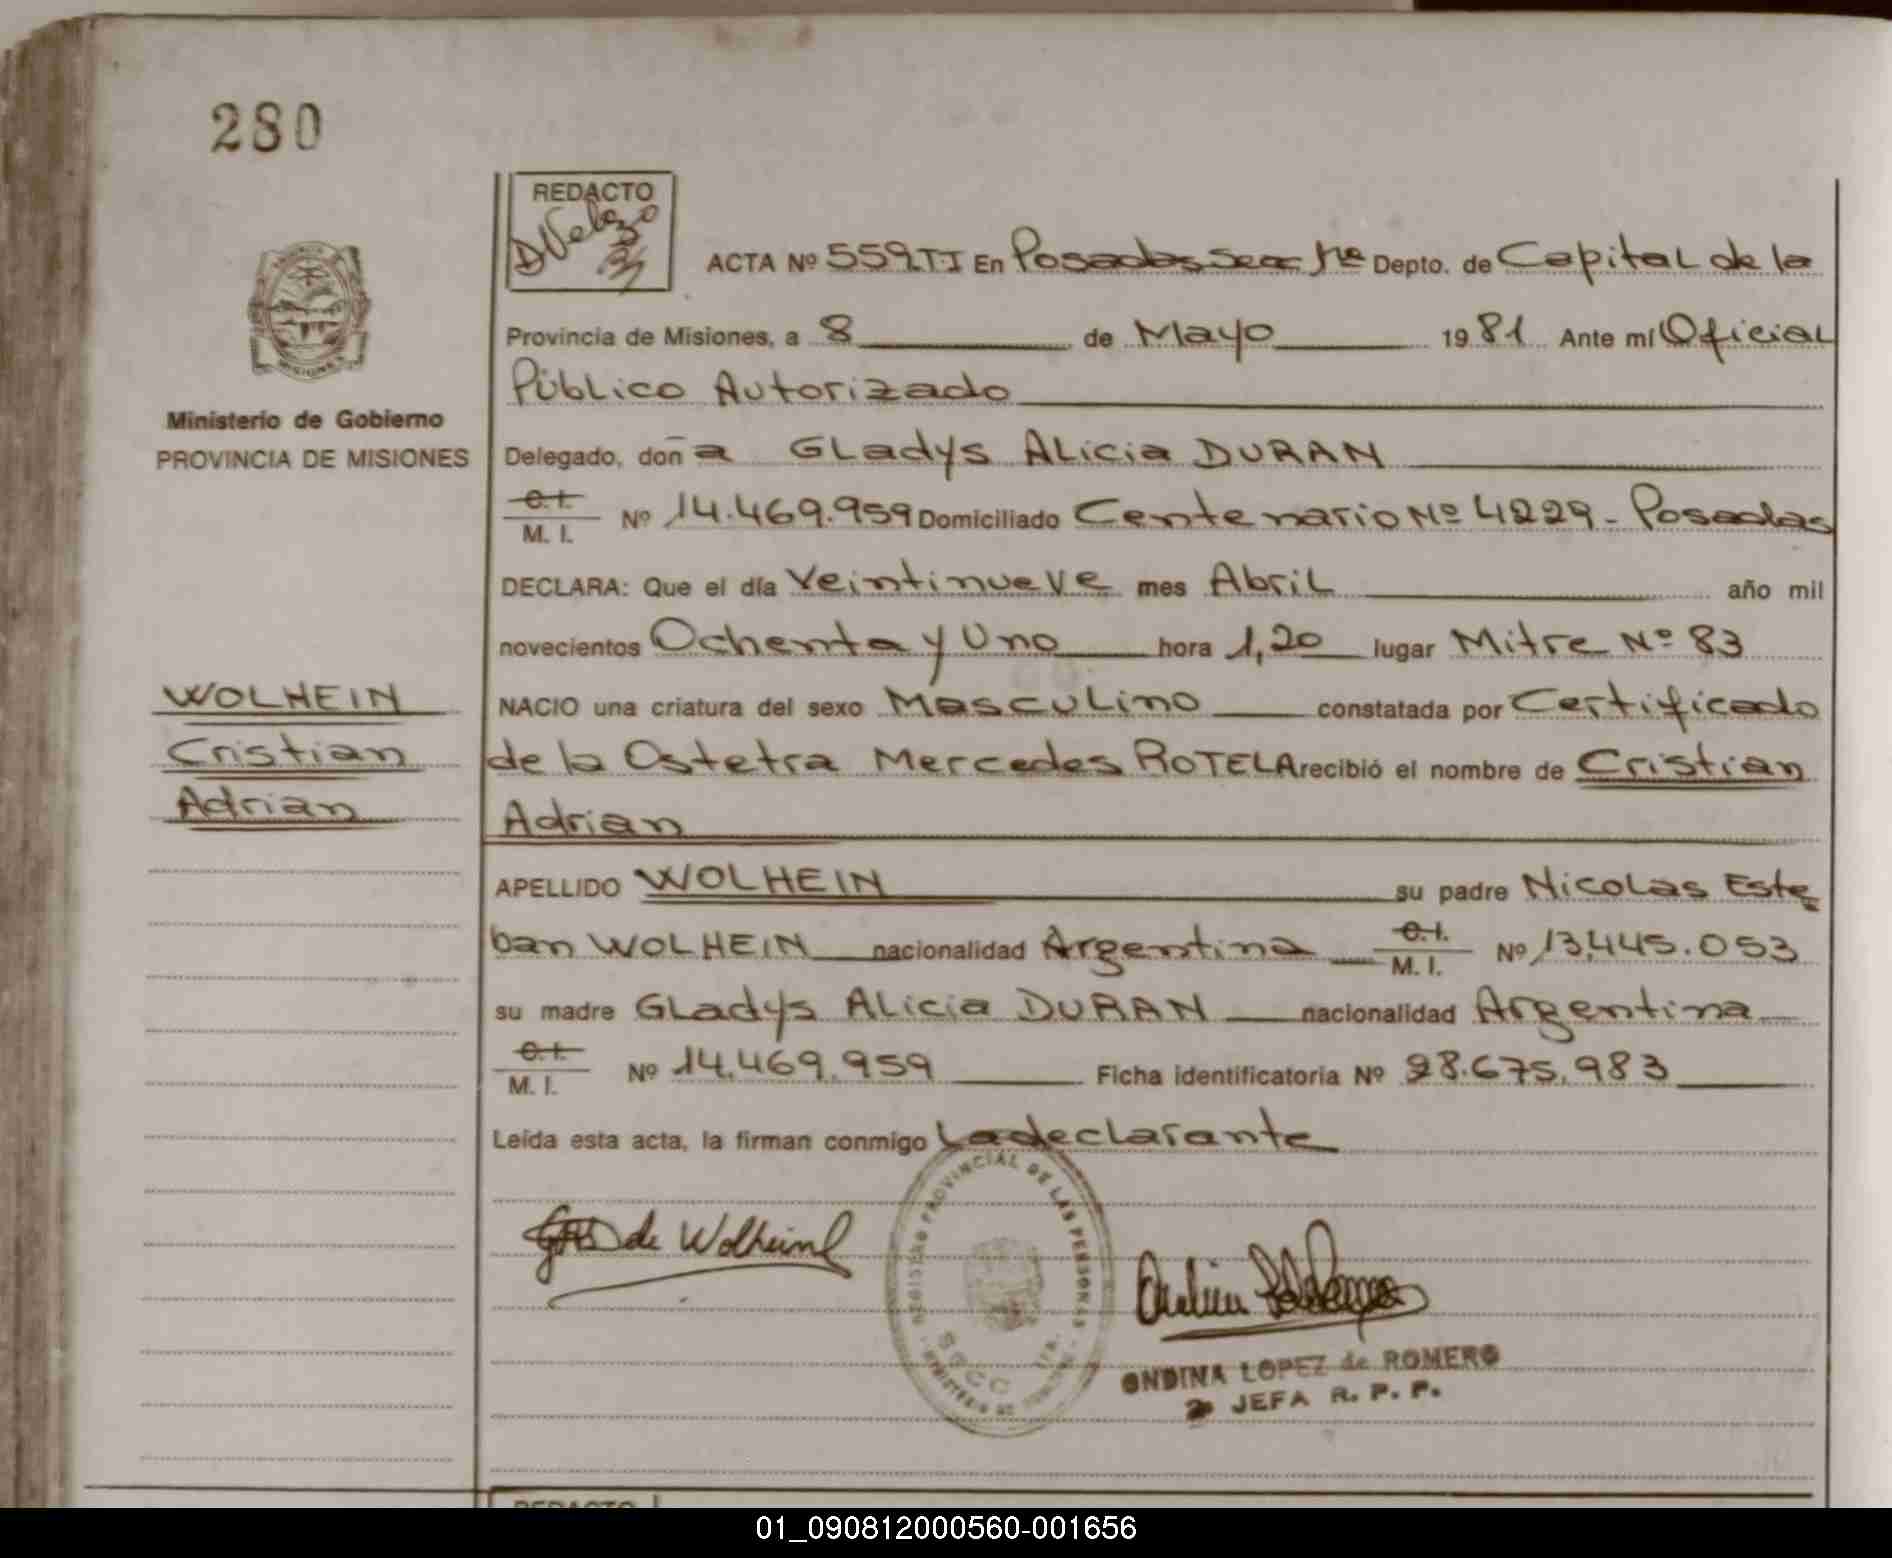 280
REDACTO
DVelazo
ACTA Nº 559.TI En Posadas Secc 1ra Depto. de Capital de la
Provincia de Misiones, a 8 de Mayo 1981 Ante mí Oficial
Público Autorizado
Ministerio de Gobierno
PROVINCIA DE MISIONES
Delegado, doña Gladys Alicia DURAN
C.I.
M. I. Nº 14.469.959 Domiciliado Centenario Nº 4229- Posadas
DECLARA: Que el día Veintinueve mes Abril año mil
novecientos Ochenta y Uno hora 1,20 lugar Mitre Nº 83
WOLHEIN
Cristian
Adrian
NACIO una criatura del sexo Masculino constatada por Certificado
de la Ostetra Mercedes ROTELA recibió el nombre de Cristian
Adrian
APELLIDO WOLHEIN su padre Nicolas Este
ban WOLHEIN nacionalidad Argentina C.I.
M. I. Nº 13,445.053
su madre Gladys Alicia DURAN nacionalidad Argentina
C.I.
M. I. Nº 14.469.959 Ficha identificatoria Nº 28.675.983
Leída esta acta, la firman conmigo La declarante
de Wolhein
REGISTRO PROVINCIAL DE LAS PERSONAS
SECC 1ra.
MINISTERIO DE GOBIERNO
ONDINA LOPEZ de ROMERO
JEFA R. P. P.
REDACTO
01_090812000560-001656